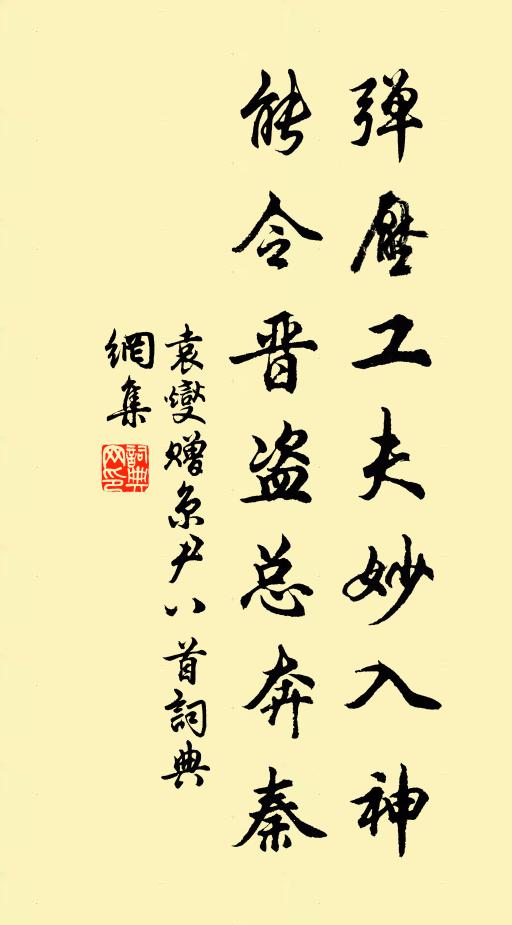 弹壓工夫妙入神
能令晋盗总奔秦
袁燮赠京尹八首詞典
網集
詞典網印